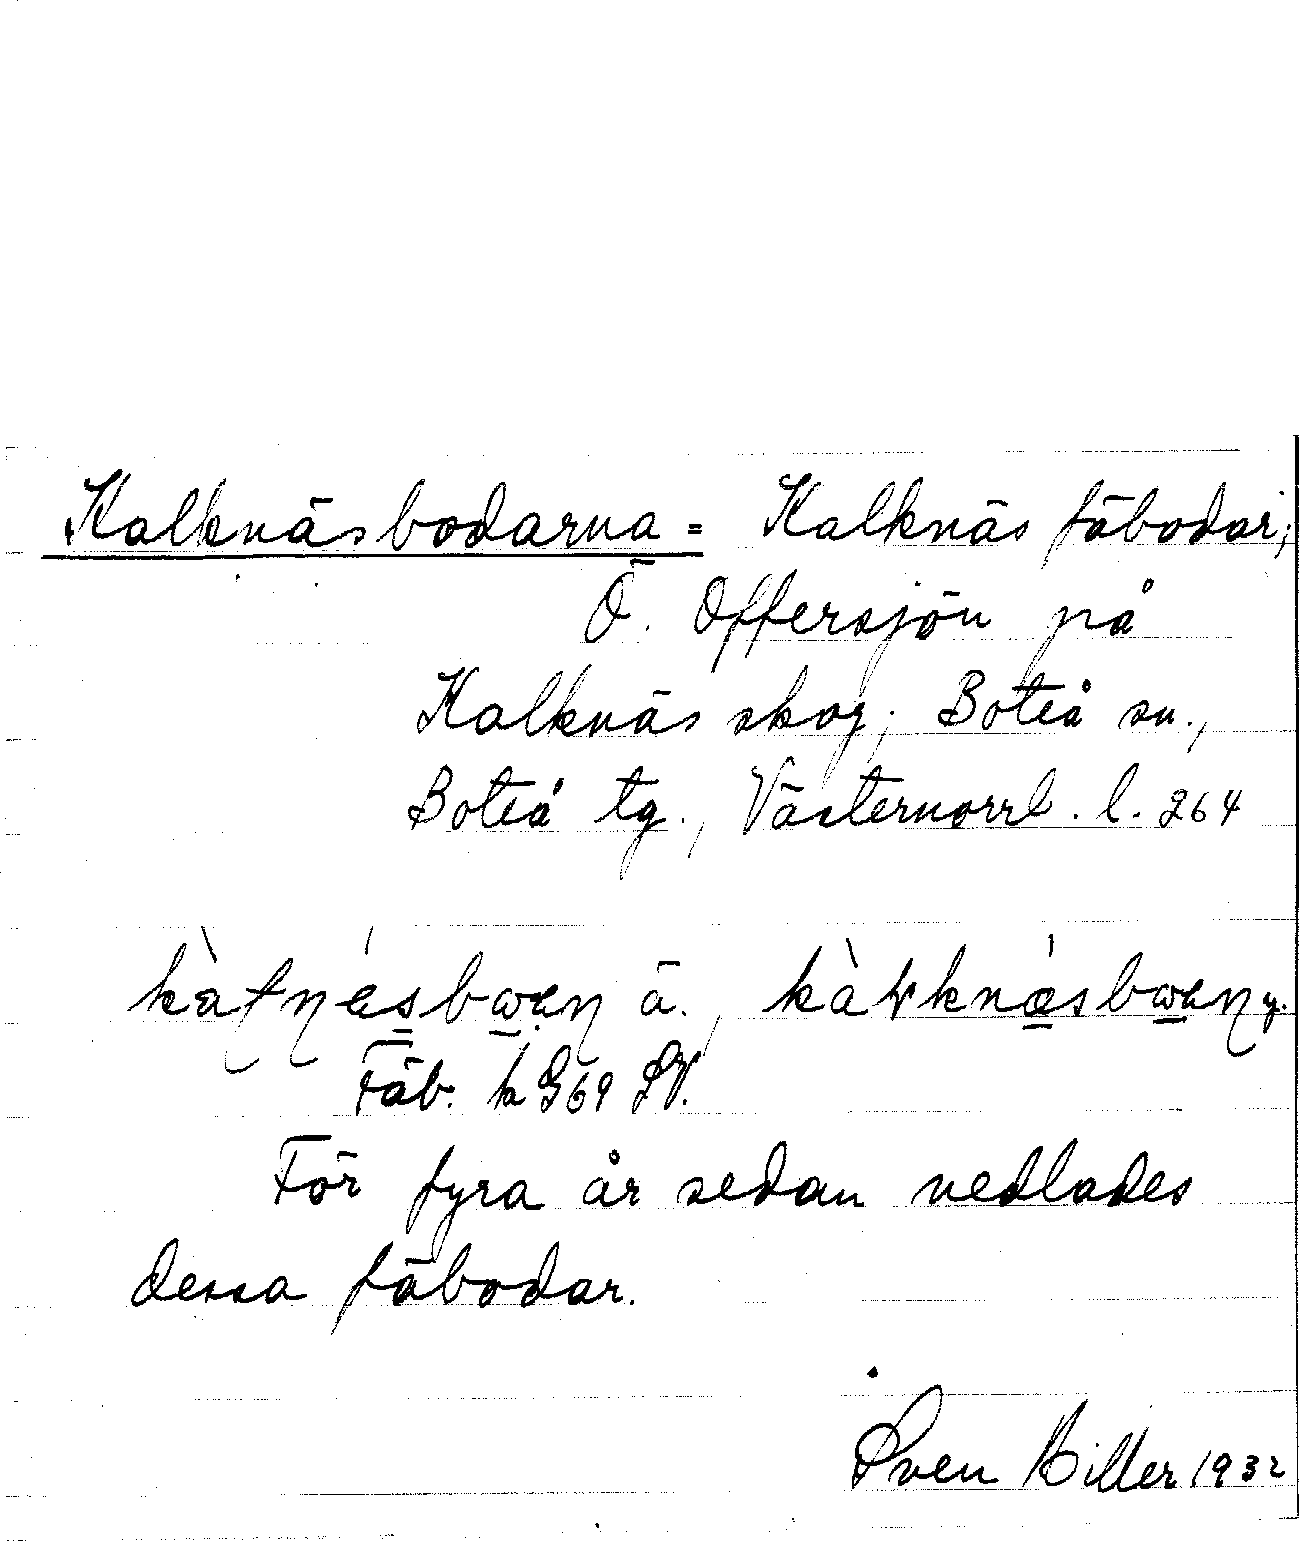 Kalknäsbodarna = Kalknäs fäbodar;
Ö. Offersjön på
Kalknäs skog; Boteå sn.,
Boteå tg., Västernorrl. l. 264
ä.,
y.
Fäb. k G69 SV.
För fyra år sedan nedlades
dessa fäbodar.
Sven Hiller 1932